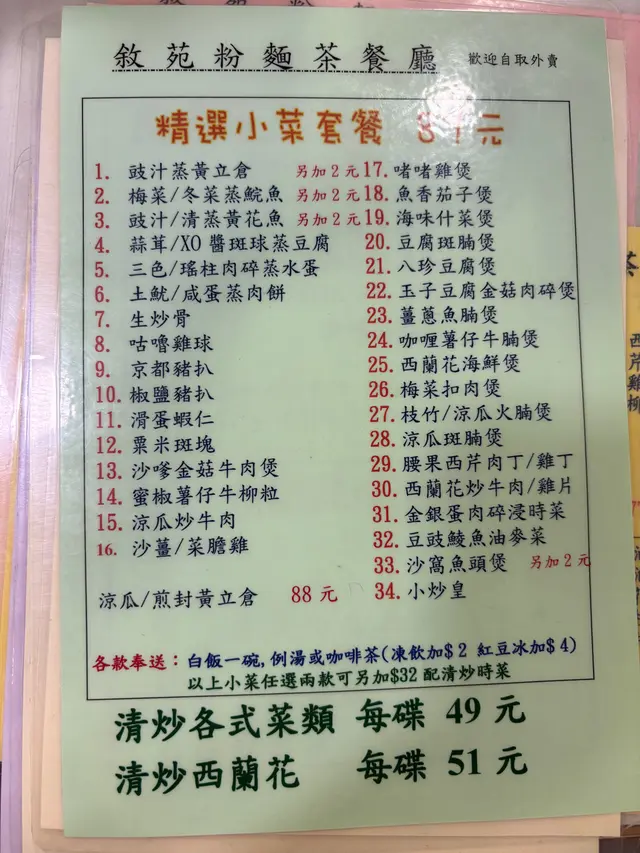 敘苑粉麵茶餐廳 歡迎自取外賣
精選小菜套餐 元
1. 豉汁蒸黃立倉 另加2元
2. 梅菜/冬菜蒸鯇魚 另加2元
3. 豉汁/清蒸黃花魚 另加2元
4. 蒜茸/XO醬斑球蒸豆腐
5. 三色/瑤柱肉碎蒸水蛋
6. 土魷/咸蛋蒸肉餅
7. 生炒骨
8. 咕嚕雞球
9. 京都豬扒
10. 椒鹽豬扒
11. 滑蛋蝦仁
12. 粟米斑塊
13. 沙嗲金菇牛肉煲
14. 蜜椒薯仔牛柳粒
15. 涼瓜炒牛肉
16. 沙薑/菜膽雞
涼瓜/煎封黃立倉 88元
17. 啫啫雞煲
18. 魚香茄子煲
19. 海味什菜煲
20. 豆腐斑腩煲
21. 八珍豆腐煲
22. 玉子豆腐金菇肉碎煲
23. 薑蔥魚腩煲
24. 咖喱薯仔牛腩煲
25. 西蘭花海鮮煲
26. 梅菜扣肉煲
27. 枝竹/涼瓜火腩煲
28. 涼瓜斑腩煲
29. 腰果西芹肉丁/雞丁
30. 西蘭花炒牛肉/雞片
31. 金銀蛋肉碎浸時菜
32. 豆豉鯪魚油麥菜
33. 沙窩魚頭煲 另加2元
34. 小炒皇
各款奉送：白飯一碗,例湯或咖啡茶(凍飲加$2 紅豆冰加$4)
以上小菜任選兩款可另加$32配清炒時菜
清炒各式菜類 每碟 49元
清炒西蘭花 每碟 51元